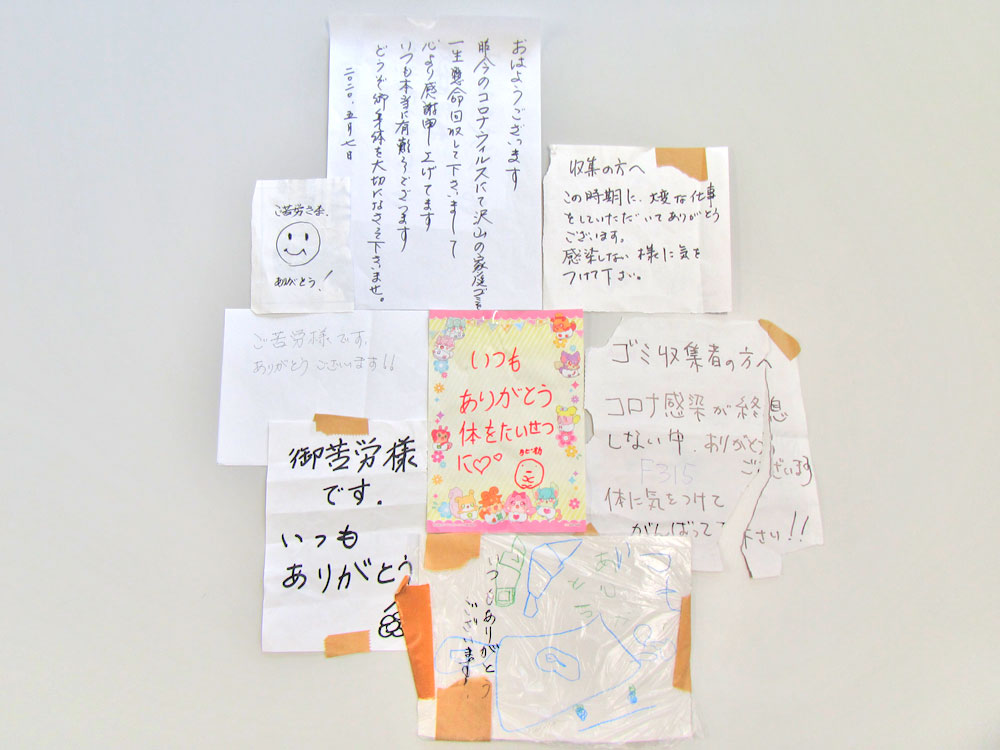 おはようございます
昨今のコロナウィルスにて沢山の家庭ゴミ
一生懸命回収して下さいまして
心より感謝申し上げてます
いつも本当に有難うございます
どうぞ御身体を大切になさって下さいませ。
二〇二〇.五月七日
収集の方へ
この時期に、大変な仕事
をしていただいてありがとう
ございます。
感染しない様に気を
つけて下さい。
ご苦労さま、
ありがとう!
ご苦労様です。
ありがとうございます!!
いつも
ありがとう
体をたいせつ
に♡♡
ゴミ収集者の方へ
コロナ感染が終息
しない中、ありがとう
ございます
F315
体に気をつけて
がんばって下さい!!
御苦労様
です。
いつも
ありがとう
いつもありがとう
ございます!
いつも